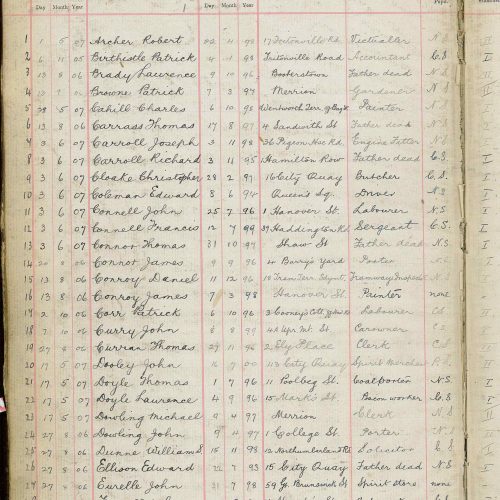 Day Month Year Day Month Year
1 5 07 Archer Robert 22 4 98 17 Tritonville Rd. Victualler N.S.
2 6 11 05 Birthistle Patrick 4 98 Tritonville Road Accountant C.S.
3 13 8 06 Brady Lawrence 9 10 96 Booterstown Father dead N.S.
4 06 Browne Patrick 7 3 97 Merrion Gardener N.S.
5 28 5 07 Cahill Charles 6 10 95 Wentworth Terr. Painter N.S.
6 13 8 06 Carrass Thomas 17 8 97 4 Sandwith St Father dead N.S.
7 3 6 07 Carroll Joseph 3 11 98 36 Pigeon Hse Rd. Engine Fitter N.S.
8 3 6 07 Carroll Richard 3 11 95 1 Hamilton Row Father dead C.S.
9 3 6 07 Cloake Christopher 28 2 97 16 City Quay Butcher C.S.
10 3 6 07 Coleman Edward 8 6 94 Queen's Sq. Driver N.S.
11 3 6 07 Connell John 25 7 96 1 Hanover St. Labourer N.S.
12 3 6 07 Connell Francis 12 7 99 39 Haddington Rd Sergeant C.S.
13 3 6 07 Connor Thomas 31 10 97 Shaw St Father dead N.S.
14 20 8 06 Connor James 9 9 96 4 Barry's Yard Porter
15 13 8 06 Conroy Daniel 11 12 96 18 Tram Terr. Tramway Inspector N.S.
16 13 8 06 Conroy James 7 3 98 Hanover St. Painter none
17 2 10 06 Corr Patrick 6 10 96 3 Labourer C.S.
18 7 10 06 Curry John 8 8 99 St. Carowner
19 27 8 06 Curran Thomas 27 11 96 2 Ely Place Clerk C.S.
20 17 5 07 Dooley John 16 7 00 113 City Quay Spirit Merchant
21 17 5 07 Doyle Thomas 1 7 96 11 Poolbeg St. Coalporter N.S.
22 17 5 07 Doyle Laurence 4 9 96 15 Mark's St. Bacon worker C.S.
23 17 5 07 Dowling Michael 9 4 97 Merrion Clerk N.S.
24 27 8 06 Dowling John 9 4 97 1 College St. Porter N.S.
25 27 8 06 Dunne William S. 15 11 98 Northumberland Rd. Solicitor
26 27 8 06 Ellison Edward 22 7 93 15 City Quay Father dead N.S.
27 27 8 06 Eurelle John 31 7 98 59 G. Brunswick St Spirit store none